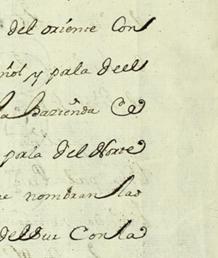 del oriente Con
ñol y pᵃla deel
la hazienda
pᵃla del Norte
e nombran las
del Sur Con la